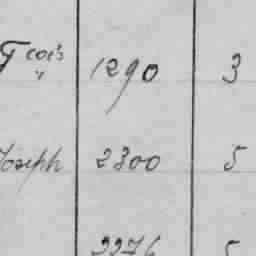 Fçois 1290 3
Joseph 2300 5
2276 5